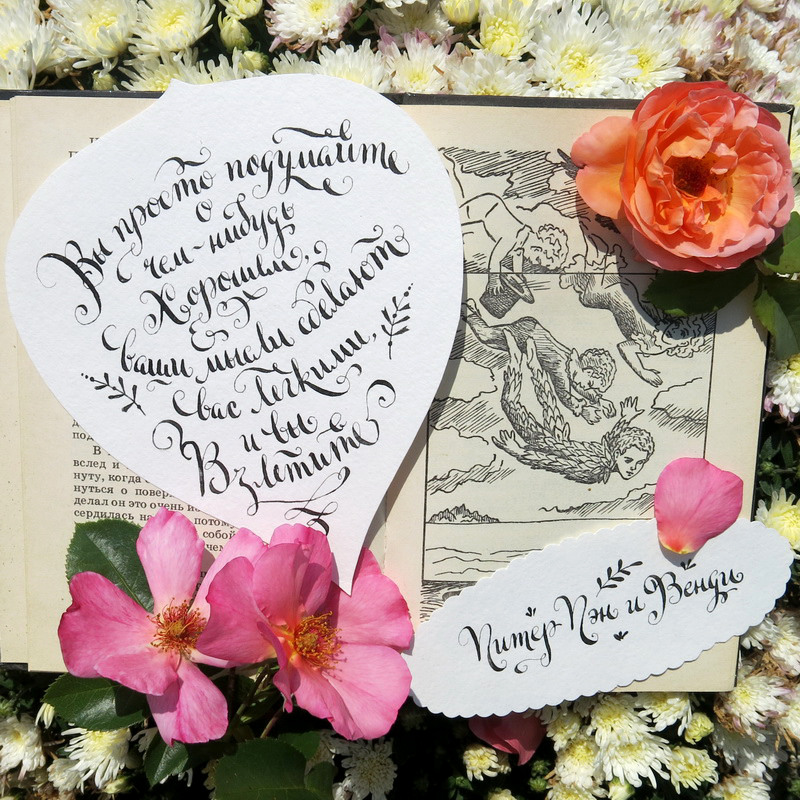 Вы просто подумайте
о
чем-нибудь
Хорошем,
&
ваши мысли сделают
вас легкими,
и вы
Взлетите
под
В
вслед и
нуту, когда
нуться о
делал он это очень
сердилась потому
собой
Питер Пэн и Венди